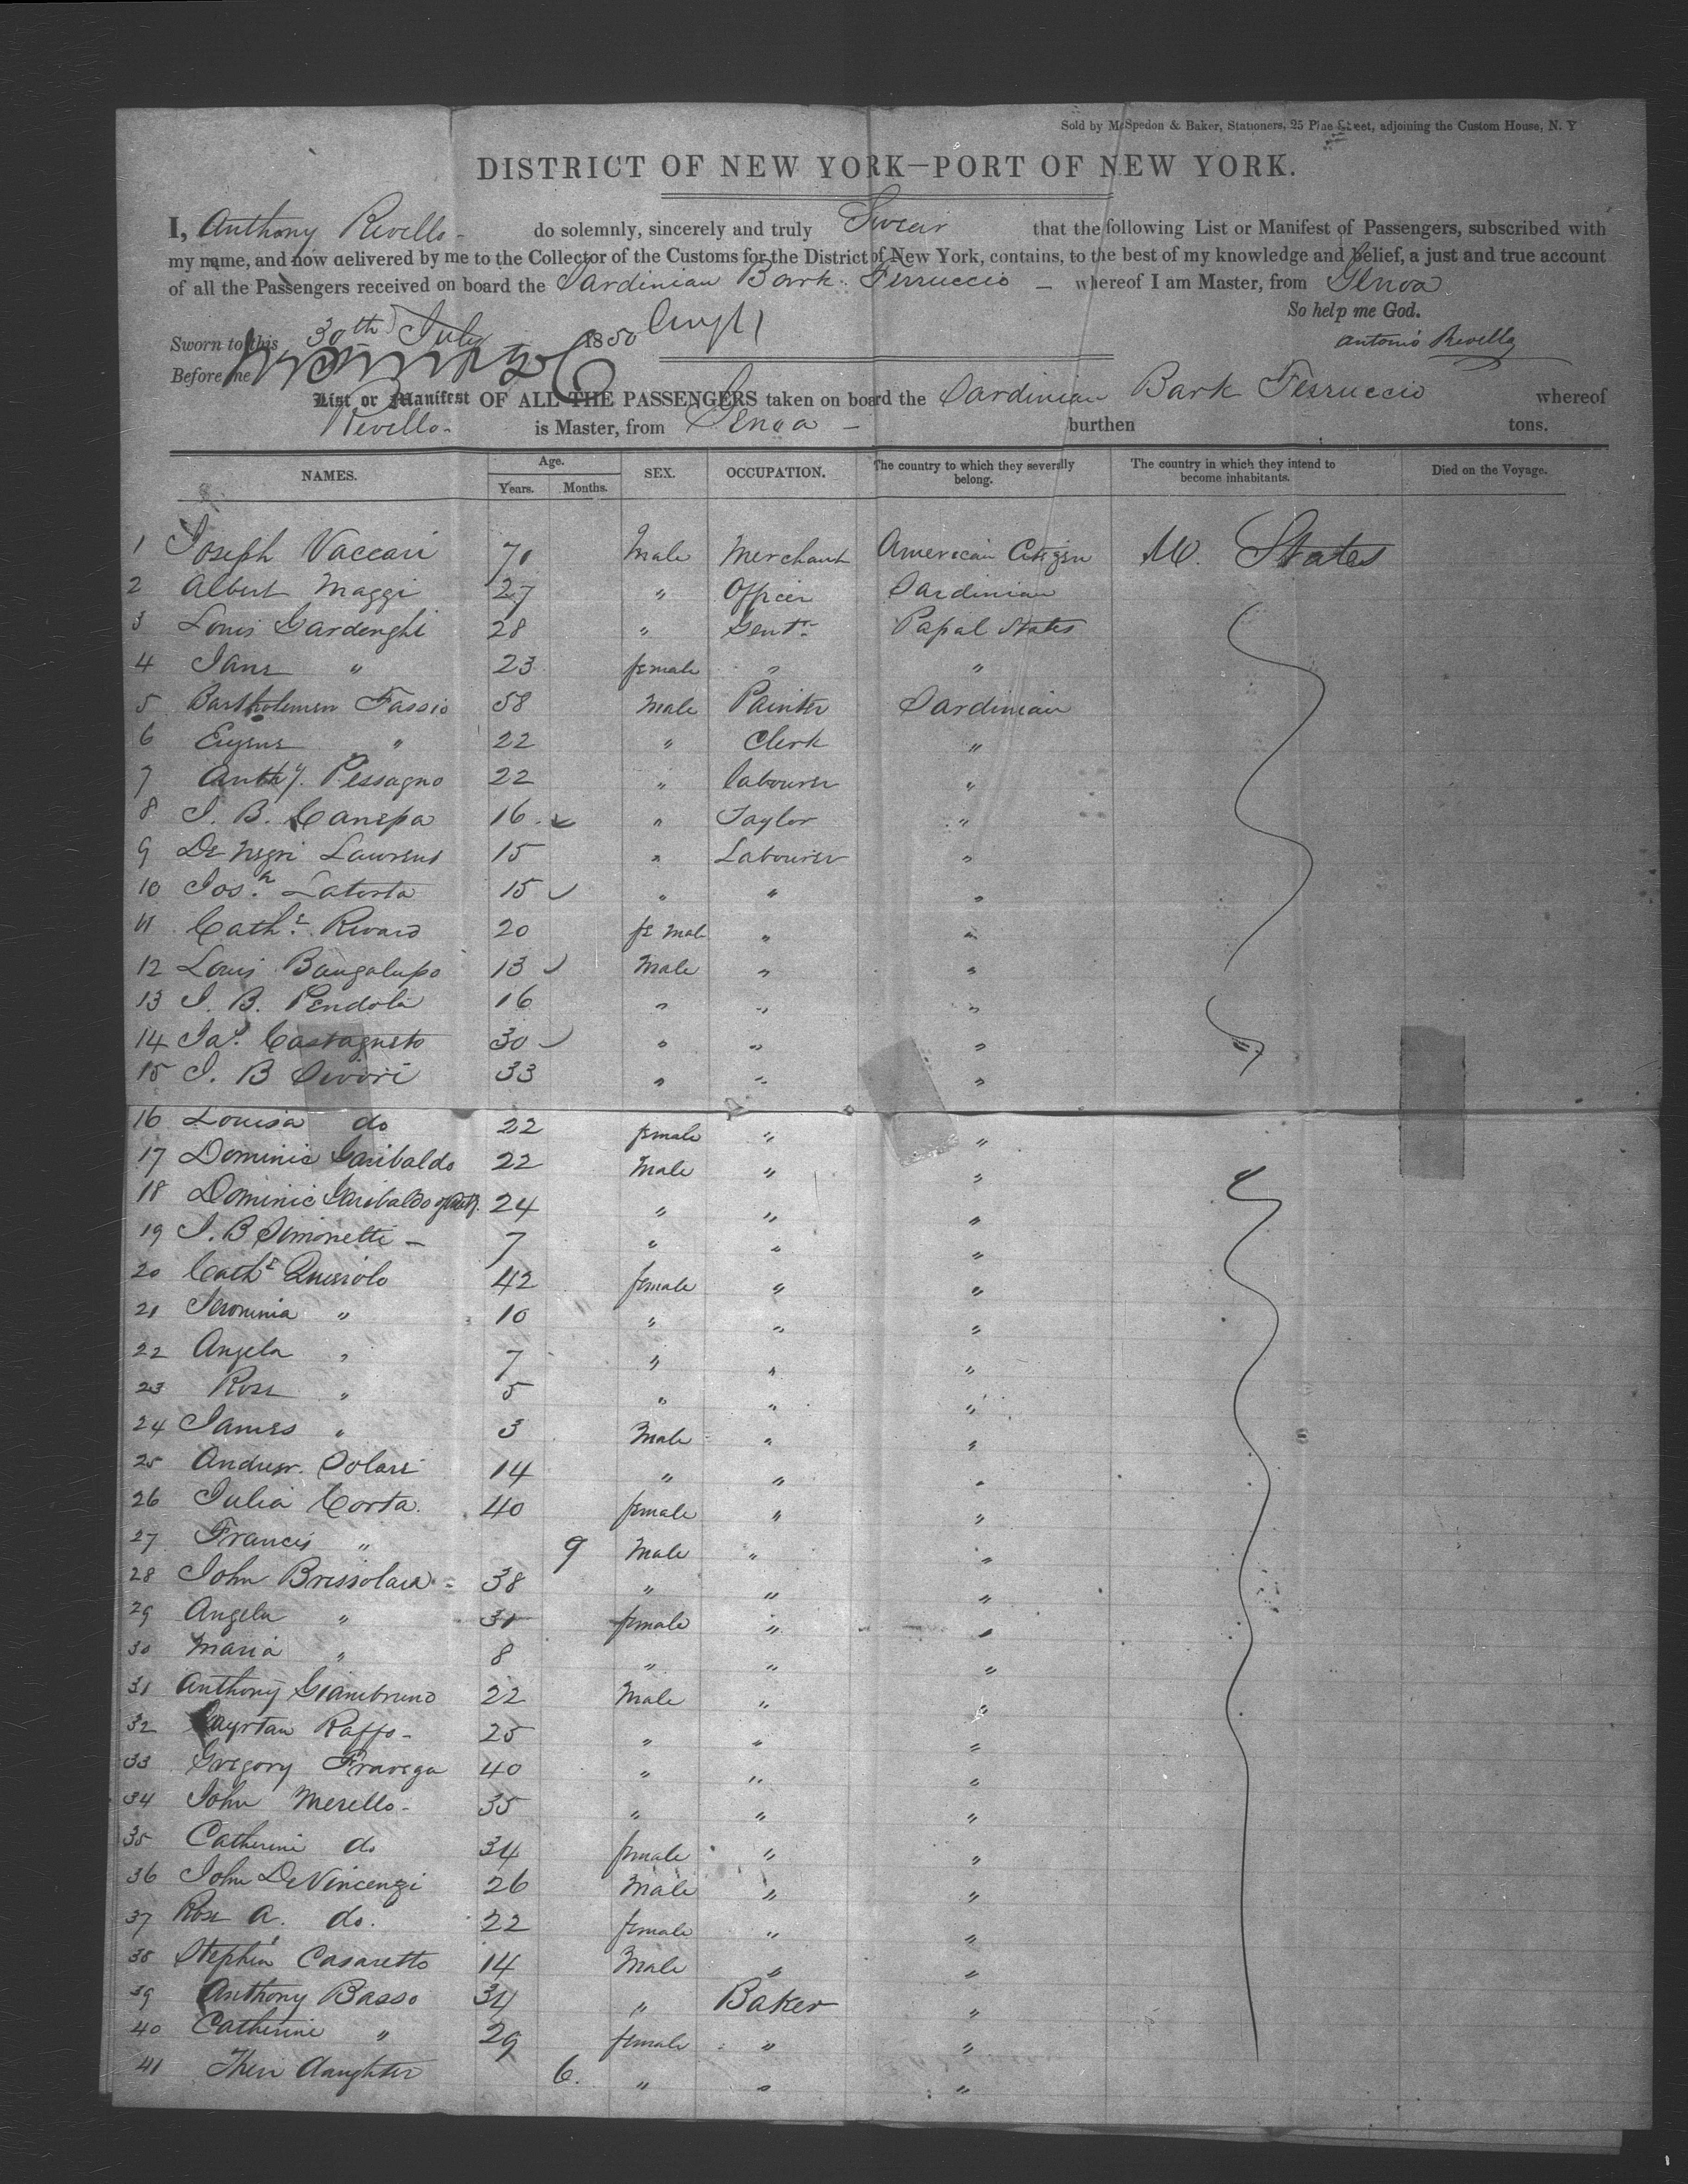 Sold by McSpedon & Baker, Stationers, 25 Pine Street, adjoining the Custom House, N. Y
DISTRICT OF NEW YORK—PORT OF NEW YORK.
I, Anthony Revello - do solemnly, sincerely and truly Swear that the following List or Manifest of Passengers, subscribed with
my name, and now delivered by me to the Collector of the Customs for the District of New York, contains, to the best of my knowledge and belief, a just and true account
of all the Passengers received on board the Sardinian Bark Ferruccio - whereof I am Master, from Genoa
So help me God.
Sworn to this 30th July 1850 Augt 1
Antonio Revello
Before me
List or Manifest OF ALL THE PASSENGERS taken on board the Sardinian Bark Ferruccio whereof
Revello - is Master, from Genoa - burthen tons.
NAMES. Age. Years. Months. SEX. OCCUPATION. The country to which they severally belong. The country in which they intend to become inhabitants. Died on the Voyage.
1 Joseph Vaccari 71 Male Merchant American Citizen U. States
2 Albert Maggi 27 " Officer Sardinian
3 Louis Gardenghi 28 " Gentn Papal States
4 Jane " 23 female " "
5 Bartholemew Fassio 58 Male Painter Sardinian
6 Eugene " 22 " Clerk "
7 Anthy. Pessagno 22 " labourer "
8 J. B. Canepa 16 " Taylor "
9 De Negri Lawrens 15 " Labourer "
10 Josh. Latorta 15 " " "
11 Cathe. Rivaro 20 fe male " "
12 Louis Bangalupo 13 Male " "
13 J. B. Pendola 16 " " "
14 Jas. Castagneto 30 " " "
15 J. B Sivori 33 " " "
16 Louisa do 22 female " "
17 Dominic Garibaldo 22 Male " "
18 Dominic Garibaldo 24 " " "
19 J. B Simonetti - 7 " " "
20 Cathe Queirolo 42 female " "
21 Jeronimia " 10 " " "
22 Angela " 7 " " "
23 Rose " 5 " " "
24 James " 3 Male " "
25 Andrew. Solari 14 " " "
26 Julia Corta. 40 female " "
27 Francis " 9 Male " "
28 John Brissolara 38 " " "
29 Angela " 31 female " "
30 Maria " 8 " " "
31 Anthony Giambruno 22 Male " "
32 Gayetan Raffo - 25 " " "
33 Gregory Fravega 40 " " "
34 John Merello - 35 " " "
35 Catherine do 34 female " "
36 John De Vincenzi 26 Male " "
37 Rose A. do. 22 female " "
38 Stephen Casaretto 14 Male " "
39 Anthony Basso 34 " Baker "
40 Catherine " 29 female " "
41 Their daughter 6. " " "